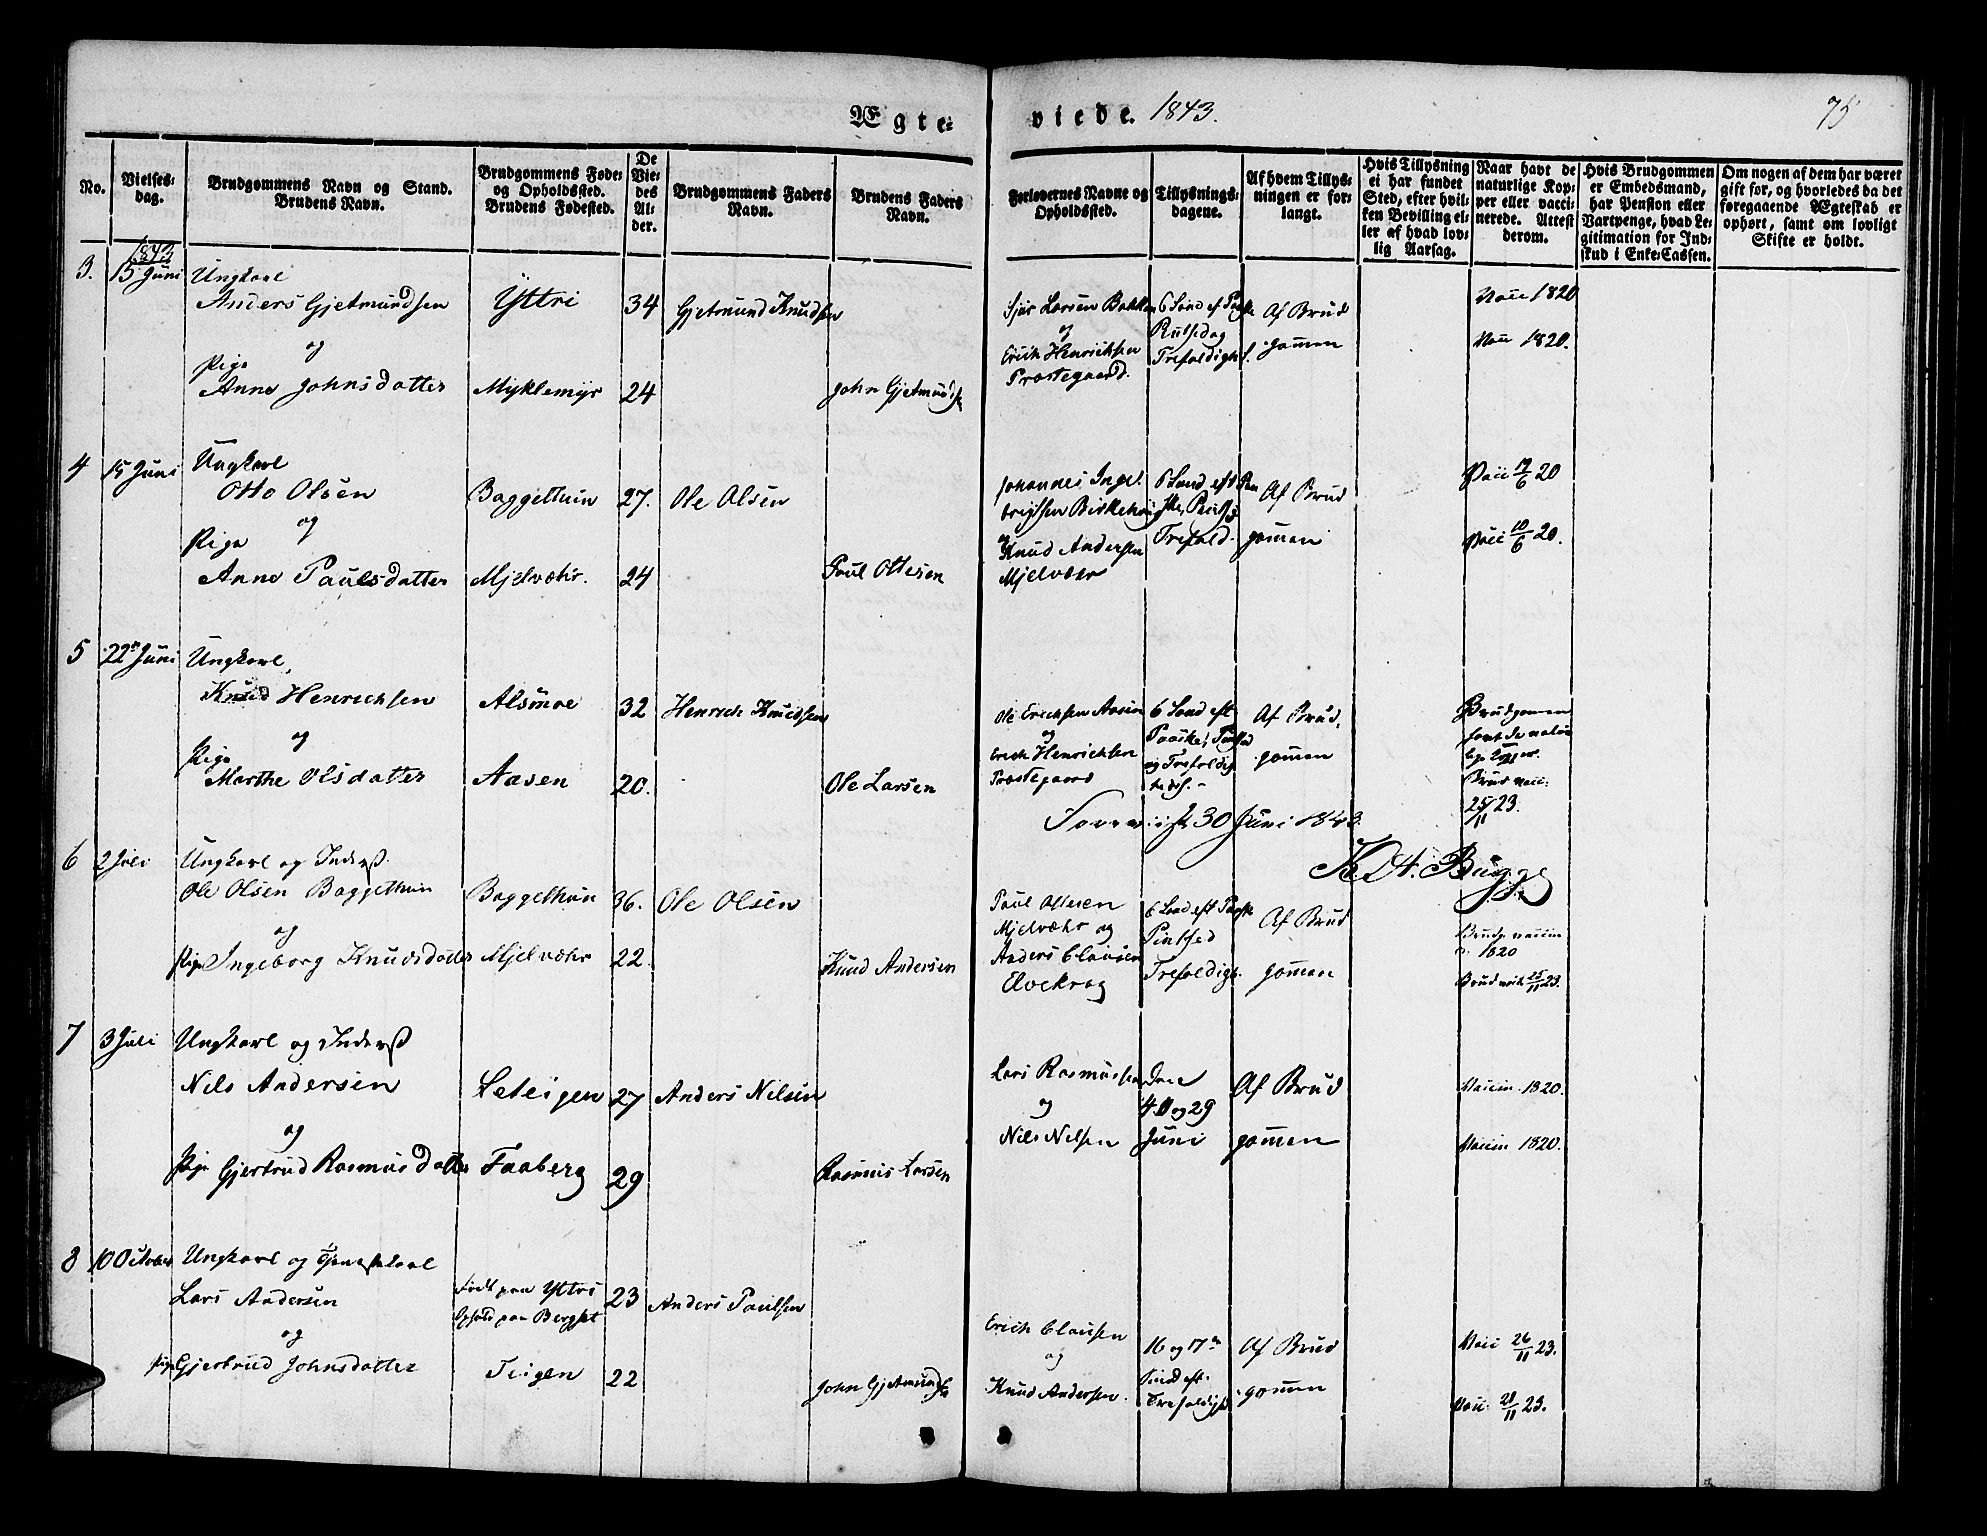 Ægte-
viede. 1843.
75
No.
Vielses-
dag.
Brudgommens Navn og Stand.
Brudens Navn.
Brudgommens Føde-
og Opholdssted.
Brudens Fødested.
De
Vie-
des
Al-
der.
Brudgommens Faders
Navn.
Brudens Faders
Navn.
Forlovernes Navne og
Opholdssted.
Tillysnings-
dagene.
Af hvem Tillys-
ningen er for-
langt.
Hvis Tillysning
ei har fundet
Sted, efter hvil-
ken Bevilling el-
ler af hvad lov-
lig Aarsag.
Naar havt de
naturlige Kop-
per eller vacci-
nerede. Attest
derom.
Hvis Brudgommen
er Embedsmand,
har Pension eller
Vartpenge, hvad Le-
gitimation for Ind-
skud i Enke-Cassen.
Om nogen af dem har været
gift før, og hvorledes da det
foregaaende Ægteskab er
ophørt, samt om lovligt
Skifte er holdt.
1843
3. 15 Juni Ungkarl
Anders Gjetmundsen Yttri 34 Gjetmund Knudsen
og
Pige
Anne Johnsdatter Myklemyr 24 John Gjetmunds
Larsen Bakken
og
Erich Henrichsen
Præstegaard.
6 Sønd ef Paaske
Trefoldigh.
Af Brud
gommen
Vacc 1820
Vacc 1820.
4 15 Juni Ungkarl
Otto Olsen Baggethun 27. Ole Olsen
og
Pige
Anne Paulsdatter Mjelvæhr. 24 Paul Ottesen
Johannes Inge-
og
Knud Andersen
Mjelvæhr
6 Sønd eft
Trefold.
Af Brud
gommen
Vacc 17/6 20
Vacc 10/6 20.
5 22 Juni Ungkarl,
Knud Henrichsen Alsmoe 32 Henrich Knudsen
og
Pige
Marthe Olsdatter Aasen 20. Ole Larsen
Ole Erichsen Aasen
og
Erich Henrichsen
Præstegaard
6 Sønd eft
Paaske,
og Trefoldig
Af Brud,
gommen
Brudgomen
Brud vacc:
25/11 23.
30 Juni 1843.
Bugge
6 2 Juli Ungkarl og Inderst
Ole Olsen Baggethun Baggethun 36. Ole Olsen
og
Pige Ingeborg Knudsdatter Mjelvæhr 22. Knud Andersen
Paul Ottesen
Mjelvæhr og
Anders Clausen
Qvekrog
6 Sønd eft Paaske
Trefoldigh.
Af Brud
gommen
1820
Brud vacc 25/11 23.
7 3 Juli Ungkarl og Inderst
Nils Andersen Leteigen 27 Anders Nilsen
og
Pige Gjertrud Rasmusdatter Faaberg 29 Rasmus Larsen
Lars Rasmussen
og
Nils Nilsen
Den
4. 11 og 29
Juni
Af Brud
gommen
Vaccin. 1820.
Vaccin 1820.
8 10 October Ungkarl og Tjenestekarl
Lars Andersen
Født paa Yttri
Ophold paa Bergset
23 Anders Paulsen
og
Pige Gjertrud Johnsdatter Teigen 22 John Gjetmunds
Erich Clausen
og
Knud Andersen.
16 og 17de
Sønd eft.
Trefoldigh
Af Brud
gommen
Vacc 26/11 23.
Vacc. 21/11 23.